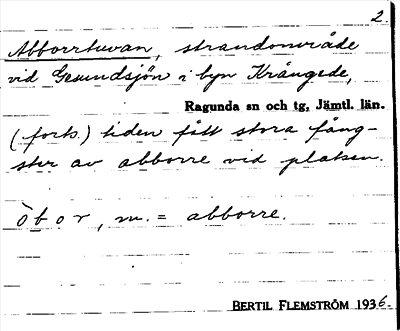 2.
Abborrtuvan, strandområde
vid Gesundsjön i byn Krångede,
Ragunda sn och tg, Jämtl. län.
(forts.) tiden fått stora fång-
ster av abborre vid platsen.
òbor, m. = abborre.
BERTIL FLEMSTRÖM 1936.